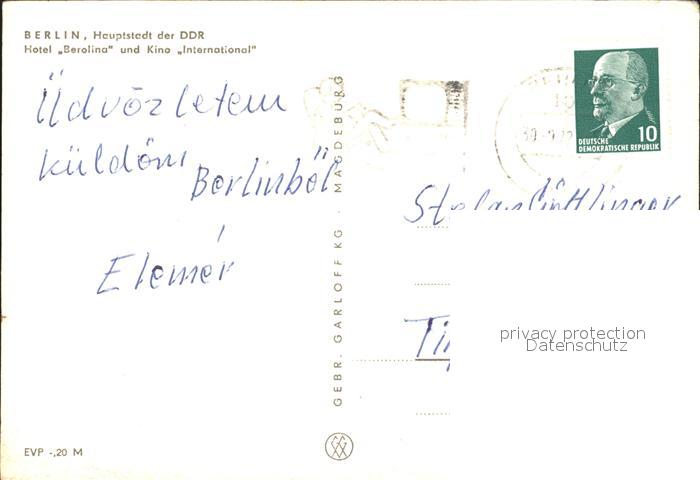 BERLIN, Hauptstadt der DDR
Hotel „Berolina" und Kino „International"
Üdvözletem
küldöm
Berlinből
Elemér
GEBR. GARLOFF KG · MAGDEBURG
10
DEUTSCHE
DEMOKRATISCHE REPUBLIK
privacy protection
Datenschutz
EVP -,20 M